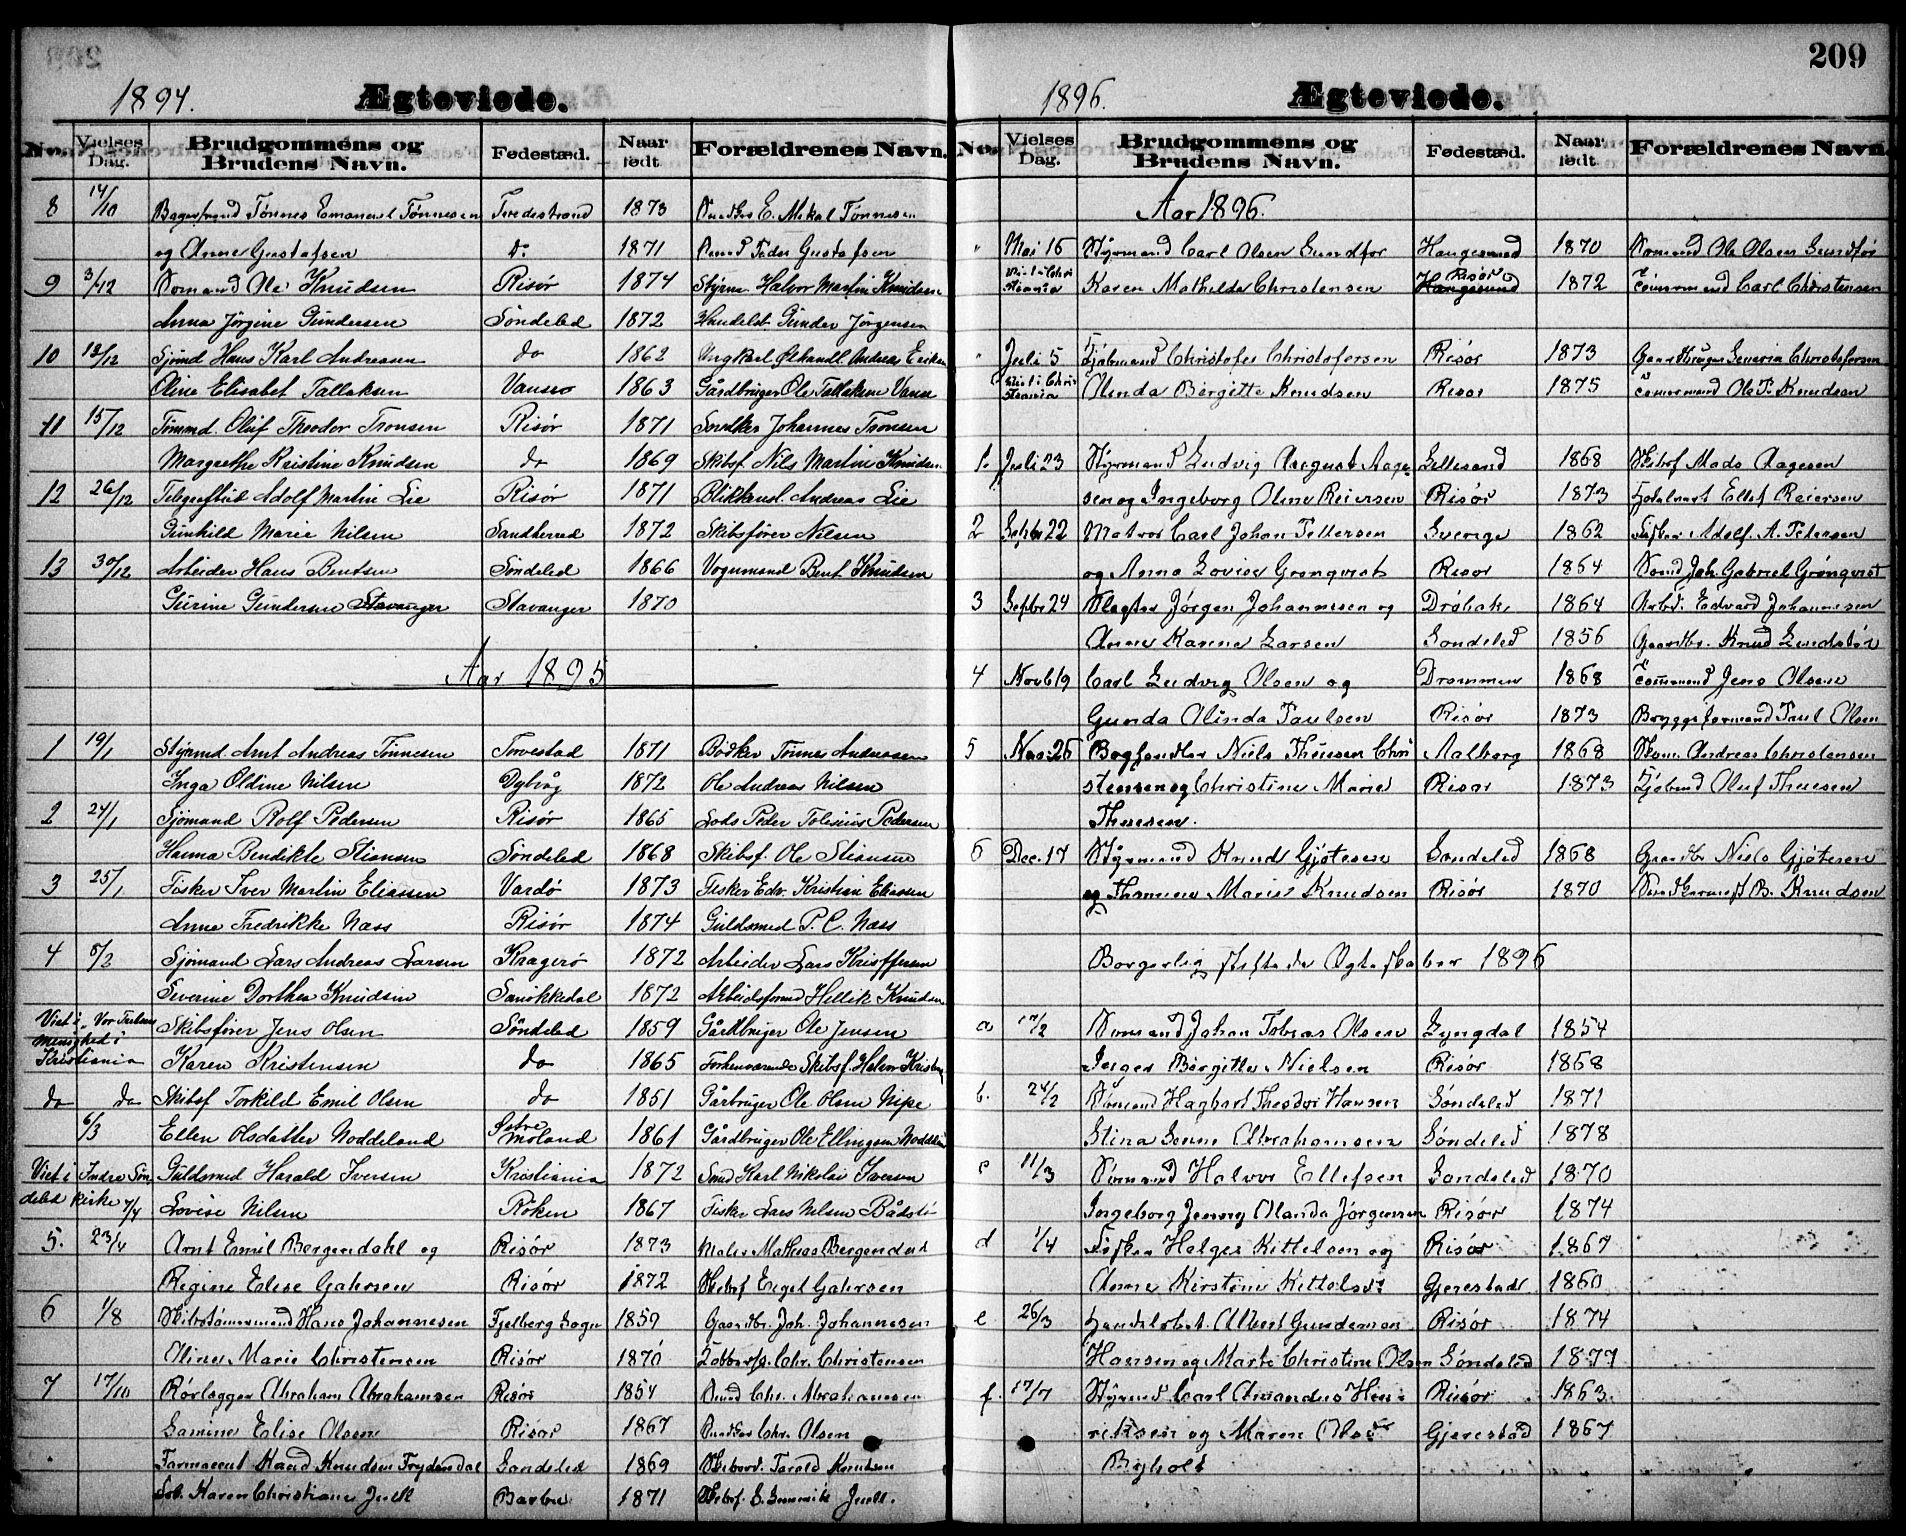 1894.
Ægteviede.
No. Vielses Dag. Brudgommens og Brudens Navn. Fødested. Naar født Forældrenes Navn.
8 14/10 Bagersvend Tønnes Emanuel Tønnesen Tvedestrand 1873 E. Mekal Tønnesen
og Anne Gustafsen do 1871 Peder Gustafsen
9 3/12 Sømand Ole Knudsen Risør 1874 Styrm. Halvor Martin Knudsen
Anna Jørgine Gundersen Søndeled 1872 Handelst. Gunder Jørgensen
10 12/12 Sjømd Hans Karl Andreasen do 1862 Ungkarl Andreas Eriksen
Oline Elisabet Tallaksen Vanse 1863 Gårdbruger Ole Tallaksen Vanse
11 15/12 Tømmd. Oluf Theodor Tronsen Risør 1871 Snedker Johannes Tronsen
Margrethe Kristine Knudsen do 1869 Skibsf. Nils Martin Knudsen
12 26/12 Telegrafist Adolf Martin Lie Risør 1871 Blikkensl. Andreas Lie
Gunhild Marie Nilsen Sandherred 1872 Skibsfører Nilsen
13 30/12 Arbeider Hans Bentsen Søndeled 1866 Vognmand Bent Knudsen
Gurine Gundersen Stavanger Stavanger 1870
Aar 1895
1 19/1 Styrmd. Arnt Andreas Tønnesen Torvestad 1871 Bødker Tønnes Andreasen
Inga Oldine Nilsen Dybvåg 1872 Ole Andreas Nilsen
2 24/1 Sjømand Rolf Pedersen Risør 1865 Lods Peder Tobias Pedersen
Hanna Bendikte Stiansen Søndeled 1868 Skibsf. Ole Stiansen
3 25/1 Fisker Iver Martin Eliassen Vardø 1873 Fisker Edv. Kristian Eliassen
Anne Fredrikke Næss Risør 1874 Guldsmed P. C. Næss
4 5/2 Sjømand Lars Andreas Larsen Kragerø 1872 Arbeider Lars Kristffersen
Severine Dorthea Knudsen Sannikedal 1872 Arbeidsmand Hellik Knudsen
Viet i Vor Frelsers Skibsfører Jens Olsen Søndeled 1859 Gårdbruger Ole Jensen
menighed i
Kristiania Karen Kristensen do 1865 Forhenværende Skibsf. Halvor Kristensen
do do Skibsf Torkild Emil Olsen do 1851 Gårbruger Ole Olsen Nipe
6/3 Ellen Olsdatter Noddeland Østre Moland 1861 Gårdbruger Ole Ellingsen Noddeland
Viet i Indre Søn Guldsmed Harald Iversen Kristiania 1872 Smed Karl Nikolai Iversen
deled kirke 7/4 Lovise Nilsen Røken 1867 Fisker Lars Nilsen Båtstø
5. 23/4 Arnt Emil Bergendahl og Risør 1873 Maler Mathias Bergendahl
Regine Elise Gahrsen Risør 1872 Skibsf Engel Gahrsen
6 1/8 Skibstømmermand Hans Johannesen Fjelberg Sogn 1859 Gaardbr. Joh. Johannesen
Oline Marie Christensen Risør 1870 Chr. Christensen
7 17/10 Rørlægger Abraham Abrahamsen Risør 1854 Chr. Abrahamsen
Samine Elise Olsen Risør 1867 Chr. Olsen
Farmaceut Knud Knudsen Frydendal Søndeled 1869 Tarald Knutsen
Karen Christiane Juell Barbu 1871 Skibsf. Juell.
209
1896.
Ægteviede.
No. Vielses Dag. Brudgommens og Brudens Navn. Fødested. Naar født Forældrenes Navn.
Aar 1896.
" Mai 16 Styrmand Carl Olsen Sundfør Haugesund 1870 Sømand Ole Olsen Sundfør
Viet i Christiania Karen Mathilde Christensen Haugesund Risør 1872 Tømmermand Carl Christensen
" Juli 5 Christofer Christofersen Risør 1873 Gaardbruger Severin Christofersen
Viet i Christiania Olinda Bergitte Knudsen Risør 1875 Tømmermand Ole T. Knudsen
1. Juli 23 Styrmand Ludvig August Aage- Lillesand 1868 Skibsf Mads Aagesen
sen og Ingeborg Oline Reiersen Risør 1873 Ellef Reiersen
2 Septbr 22 Matros Carl Johan Pettersen Sverige 1862 Fisker Adolf. A. Petersen
og Anna Lovise Grønqvist Risør 1864 Joh. Gabriel Grønqvist
3 Septbr 24 Slagter Jørgen Johannesen og Drøbak 1864 Arbd. Edvard Johannesen
Anne Karine Larsen Søndeled 1856 Gaardbr. Knud
4 Novb 19 Carl Ludvig Olsen og Drammen 1868 Tømmermand Jens Olsen
Gunda Olinda Paulsen Risør 1873 Bryggeformand Paul Olsen
5 Nov. 26 Boghandler Niels Thuesen Chri- Aalborg 1868 Andreas Christensen
stensen og Christine Marie Risør 1873 Oluf Thuesen
Thuesen.
6 Dec. 17 Styrmand Knud Gjøtesen Søndeled 1868 Gaardbr. Niels Gjøtesen
og Thomine Marie Knudsen Risør 1870 B. Knudsen
Borgerlig stiftede Ægteskaber 1896
a 17/2 Sømand Johan Tobias Olsen Lyngdal 1854
Inger Birgitte Nielsen Risør 1858
b. 24/2 Sømand Hagbart Theodor Hansen Søndeled 1871
Stina Abrahamsen Søndeled 1878
c 11/3 Sømand Halvor Ellefsen Søndeled 1870
Ingeborg Jenny Olanda Jørgensen Risør 1874
d 1/4 Fisker Holger Kittelsen og Risør 1867
Anne Kirstine Kittelsdr Gjerestad 1860
e 26/3 Handelsbet. Albert Gundersen Risør 1874
Hansen og Marte Christine Olsen Søndeled 1877
f. 17/7 Styrmd Carl Amandus Hen- Risør 1863
riksen og Maren Olsdr Gjerestad 1867
Byholt